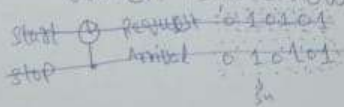 Start Request 0 1 0 1 0 1
Stop Arrival 0 1 0 1 0 1